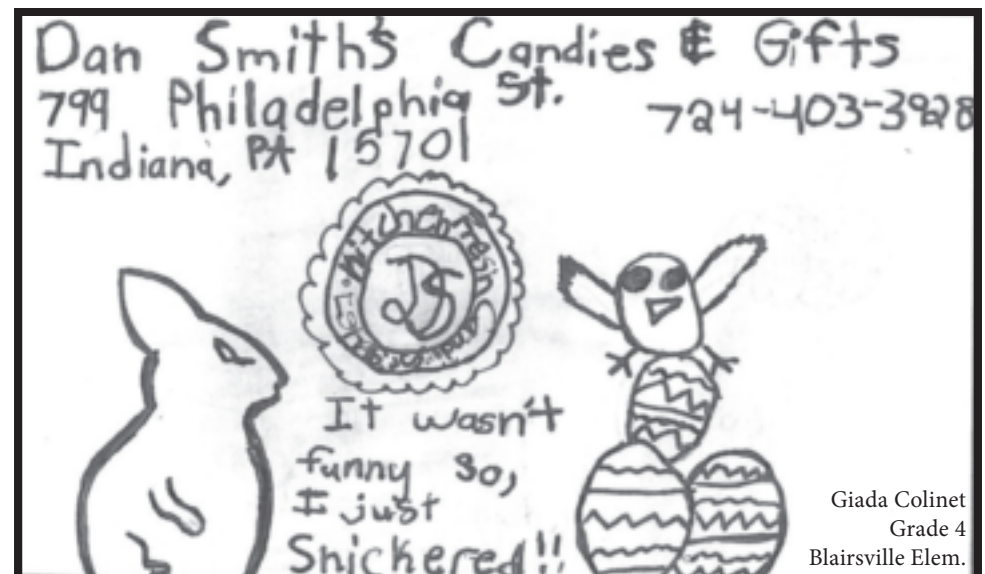 Dan Smith's Candies & Gifts
799 Philadelphia St.
724-403-3928
Indiana, PA 15701
Kitchen Fresh
DS
It wasn't
funny so,
I just
Snickered!!
Giada Colinet
Grade 4
Blairsville Elem.